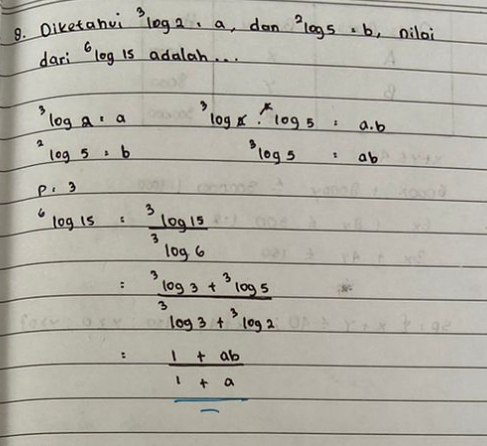 8. Diketahui ³log 2 = a, dan ²log 5 = b, nilai
dari ⁶log 15 adalah...
³log 2 = a ³log 2 . ²log 5 = a.b
²log 5 = b ³log 5 = ab
P = 3
⁶log 15 = ³log 15
³log 6
= ³log 3 + ³log 5
³log 3 + ³log 2
= 1 + ab
1 + a